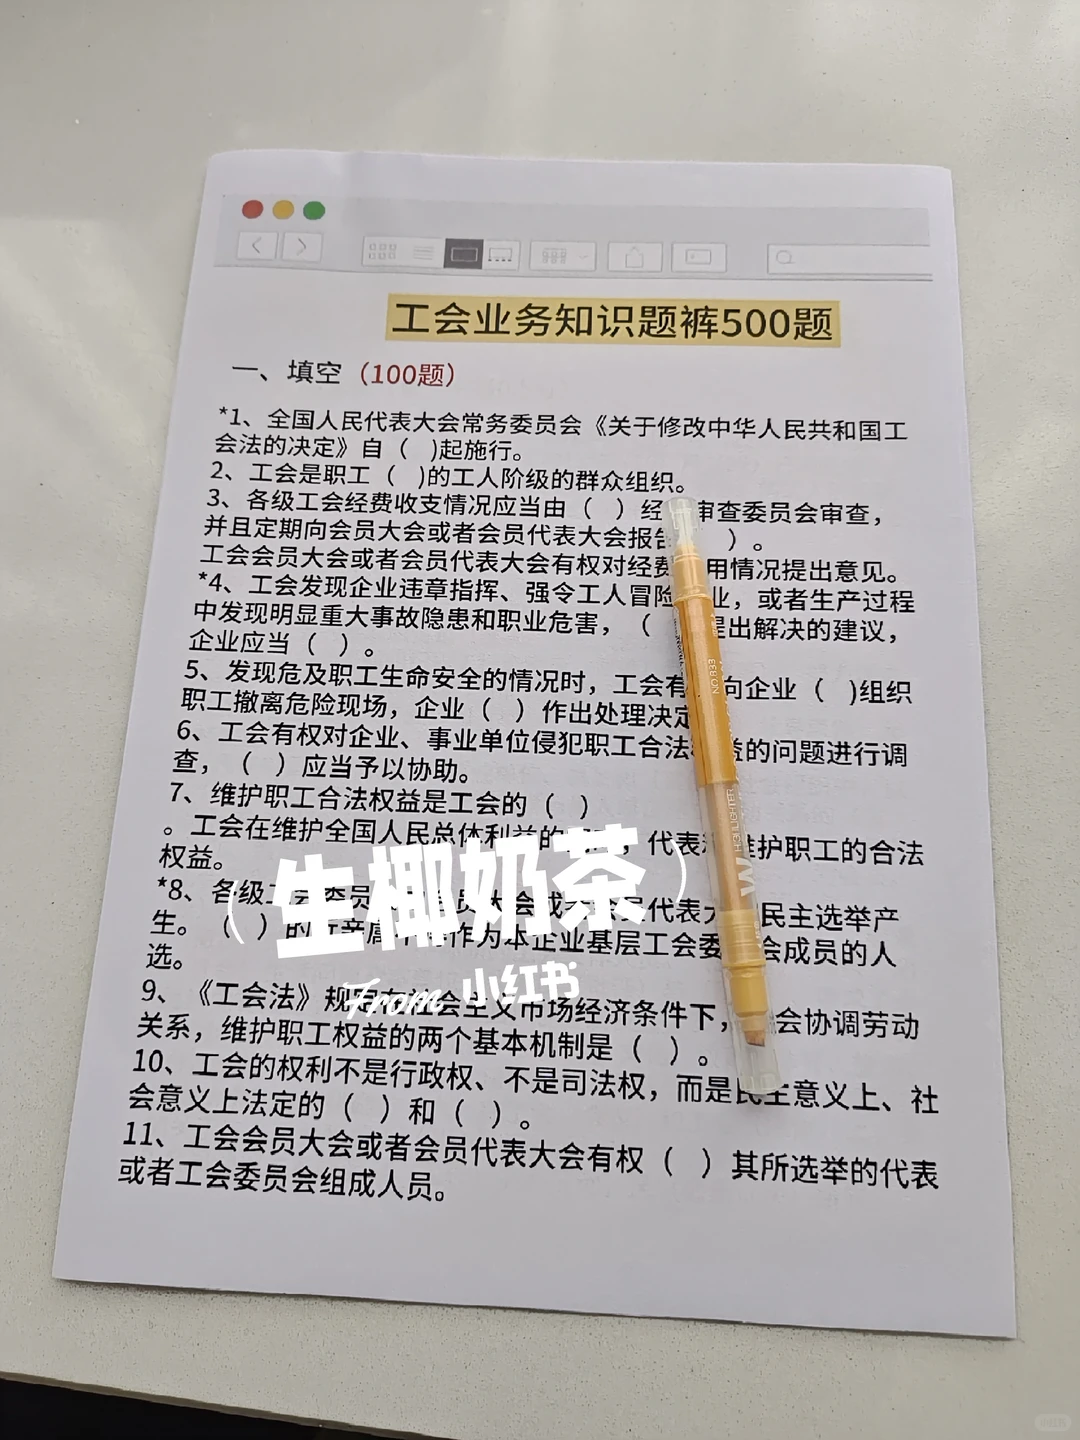 工会业务知识题裤500题
一、填空（100题）
*1、全国人民代表大会常务委员会《关于修改中华人民共和国工
会法的决定》自（ )起施行。
2、工会是职工（ )的工人阶级的群众组织。
3、各级工会经费收支情况应当由（ ）经 审查委员会审查，
并且定期向会员大会或者会员代表大会报告 ）。
工会会员大会或者会员代表大会有权对经费 用情况提出意见。
*4、工会发现企业违章指挥、强令工人冒险 业，或者生产过程
中发现明显重大事故隐患和职业危害，（ 提出解决的建议，
企业应当（ ）。
5、发现危及职工生命安全的情况时，工会有 向企业（ )组织
职工撤离危险现场，企业（ ）作出处理决定
6、工会有权对企业、事业单位侵犯职工合法 益的问题进行调
查，（ ）应当予以协助。
7、维护职工合法权益是工会的（ ）
。工会在维护全国人民总体利益的 ，代表 维护职工的合法
权益。
*8、各级工会委员 会员大会或 会员代表大 民主选举产
生。（ ）的近亲属不得作为本企业基层工会委 会成员的人
选。
（生椰奶茶）
From 小红书
9、《工会法》规定在社会主义市场经济条件下， 会协调劳动
关系，维护职工权益的两个基本机制是（ ）。
10、工会的权利不是行政权、不是司法权，而是民主意义上、社
会意义上法定的（ ）和（ ）。
11、工会会员大会或者会员代表大会有权（ ）其所选举的代表
或者工会委员会组成人员。
NO.833
HIGHLIGHTER